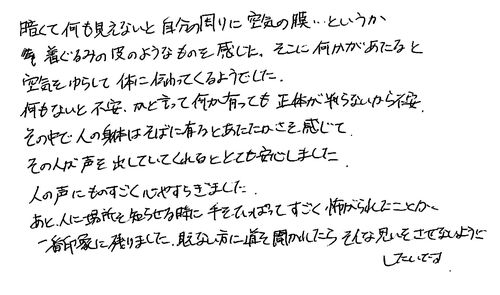 暗くて何も見えないと自分の周りに空気の膜…というか
着ぐるみの皮のようなものを感じた。そこに何かがあたると
空気をゆらして体に伝わってくるようでした.
何もないと不安. かと言って何か有っても正体が判らないから不安.
その中で人の身体はそばに有るとあたたかさを感じて.
その人が声を出していてくれるととても安心しました.
人の声にものすごく心やすらぎました.
あと、人に場所を知らせる時に手をひっぱってすごく怖がられたことが
一番印象に残りました. 見えない方に道を聞かれたらそんな思いをさせないように
したいです